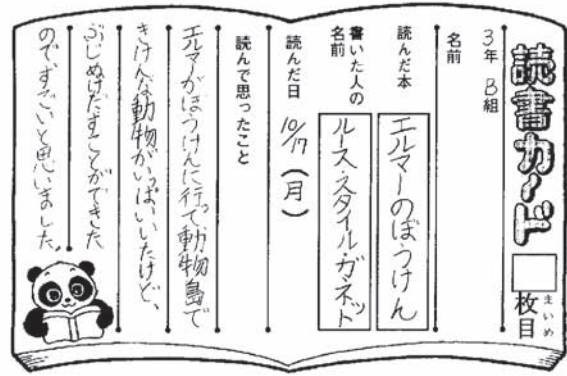 読書カード 枚目
まいめ
3年 B組
名前
読んだ本 エルマーのぼうけん
書いた人の名前 ルース・スタイルス・ガネット
読んだ日 10/17(月)
読んで思ったこと
エルマーがぼうけんに行って、動物島で
きけんな動物がいっぱいいたけど、
ぶじぬけだすことができた
のですごいと思いました。